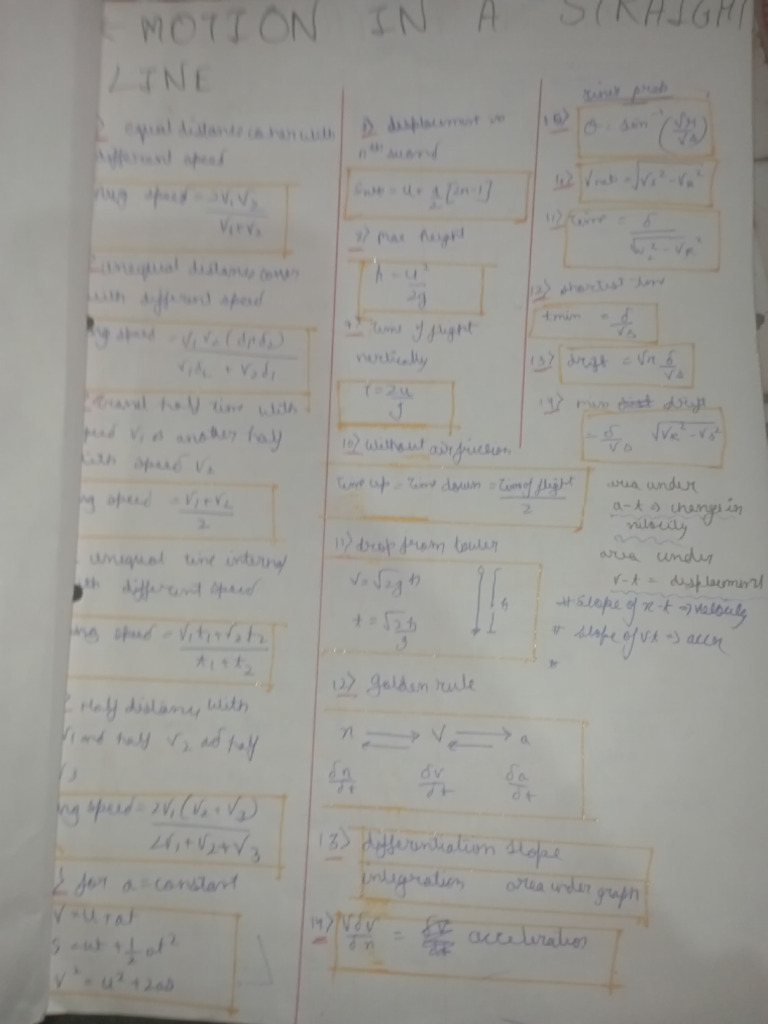 MOTION IN A STRAIGHT
LINE
equal distance cover with
different speed
Avg speed = 2V₁V₂ / V₁+V₂
unequal distance cover
with different speed
ng speed = V₁V₂(d₁+d₂) / V₁d₂ + V₂d₁
travel half time with
speed V₁ & another half
with speed V₂
ng speed = V₁+V₂ / 2
unequal time interval
with different speed
ng speed = V₁t₁+V₂t₂ / t₁+t₂
Half distance with
V₁ and half V₂ and half
V₃
ng speed = 2V₁(V₂+V₃) / 2V₁+V₂+V₃
for a = constant
V = u+at
S = ut + ½at²
V² = u²+2as
displacement in
nth second
Snth = u + a/2 [2n-1]
8) max height
h = u²/2g
9) time of flight
vertically
T = 2u/g
10) without air friction
time up = time down = time of flight / 2
11) drop from tower
V = √2gh
t = √2h/g
h
12) Golden rule
x ⇌ V ⇌ a
δx/δt δv/δt δa/δt
13) differentiation slope
integration area under graph
14) Vδv/δx = δv/δt acceleration
river prob
θ = sin⁻¹
Vnet = √Vs²-VR²
11) time = d / √Vs²-VR²
12) shortest time
tmin = d/Vs
13) drift = VR d/Vs
14) min drift
= d/Vs √VR²-Vs²
area under
a-t => changes in
velocity
area under
v-t = displacement
* slope of x-t => velocity
* slope of vt => accn
*